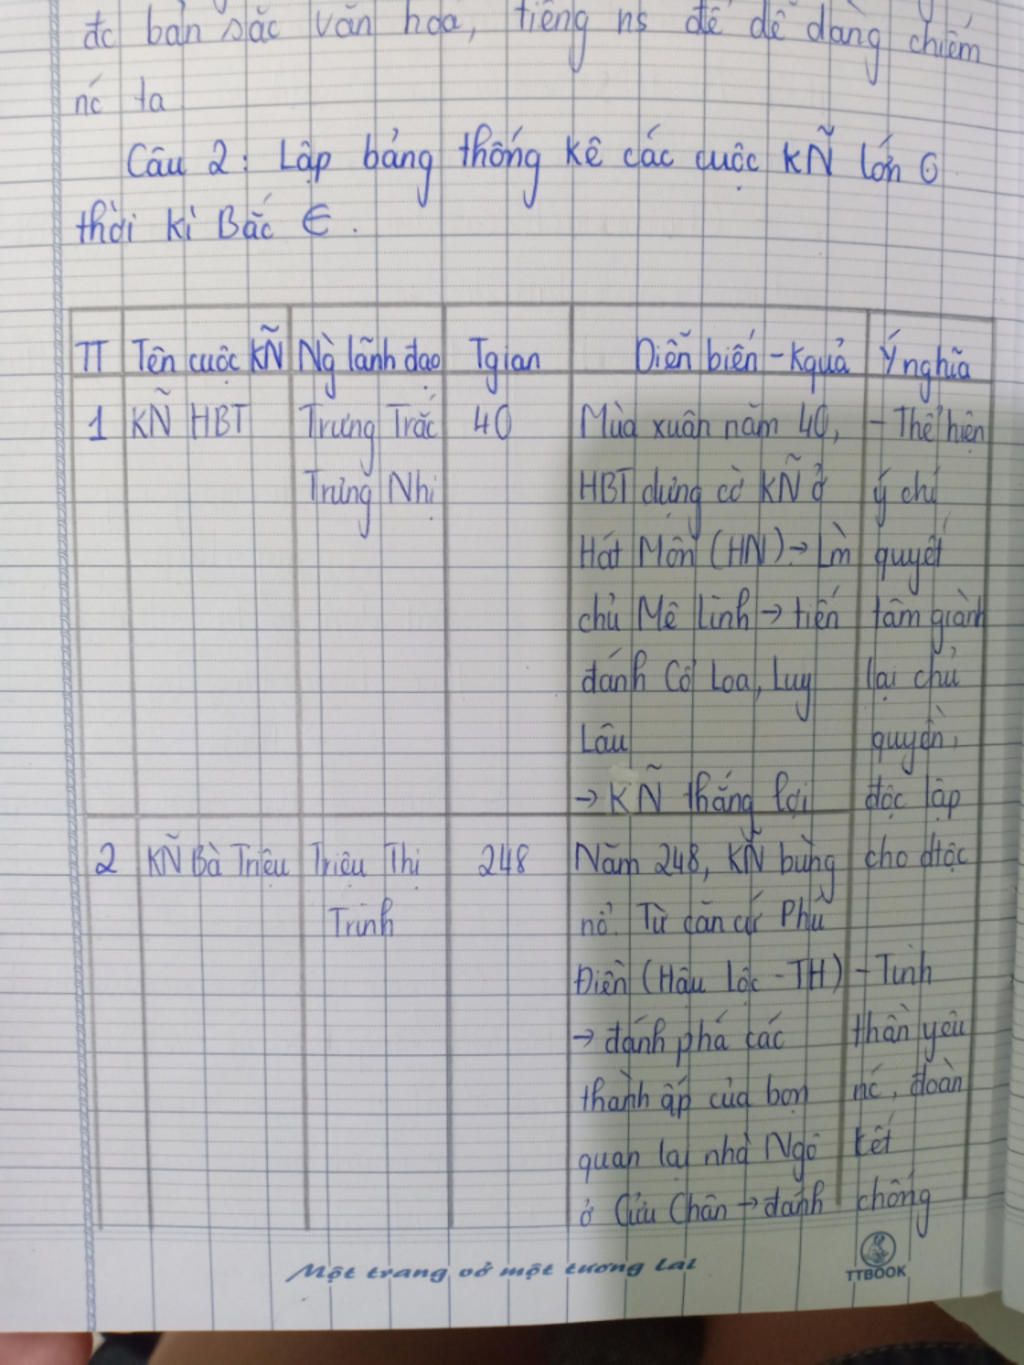 đc bản sắc văn hóa, tiếng ns để dễ dàng chiếm
nc ta
Câu 2: Lập bảng thống kê các cuộc KN lớn
thời kì Bắc Є.
TT Tên cuộc KN Ng lãnh đạo Tgian Diễn biến - Kquả Ý nghĩa
1 KN HBT Trưng Trắc 40 Mùa xuân năm 40, - Thể hiện
Trưng Nhị HBT dựng cờ KN ở ý chí
Hát Môn (HN) → Lm quyết
chủ Mê Linh → tiến tâm giành
đánh Cổ Loa, Luy lại chủ
Lâu quyền,
→ KN thắng lợi độc lập
2 KN Bà Triệu Triệu Thị 248 Năm 248, KN bùng cho dtộc
Trinh nổ. Từ căn cứ Phú
Điền (Hậu Lộc - TH) - Tinh
→ đánh phá các thần yêu
thành ấp của bọn nc, đoàn
quan lại nhà Ngô kết
ở Cửu Chân → đánh chống
Một trang vở một tương lai
TTBOOK